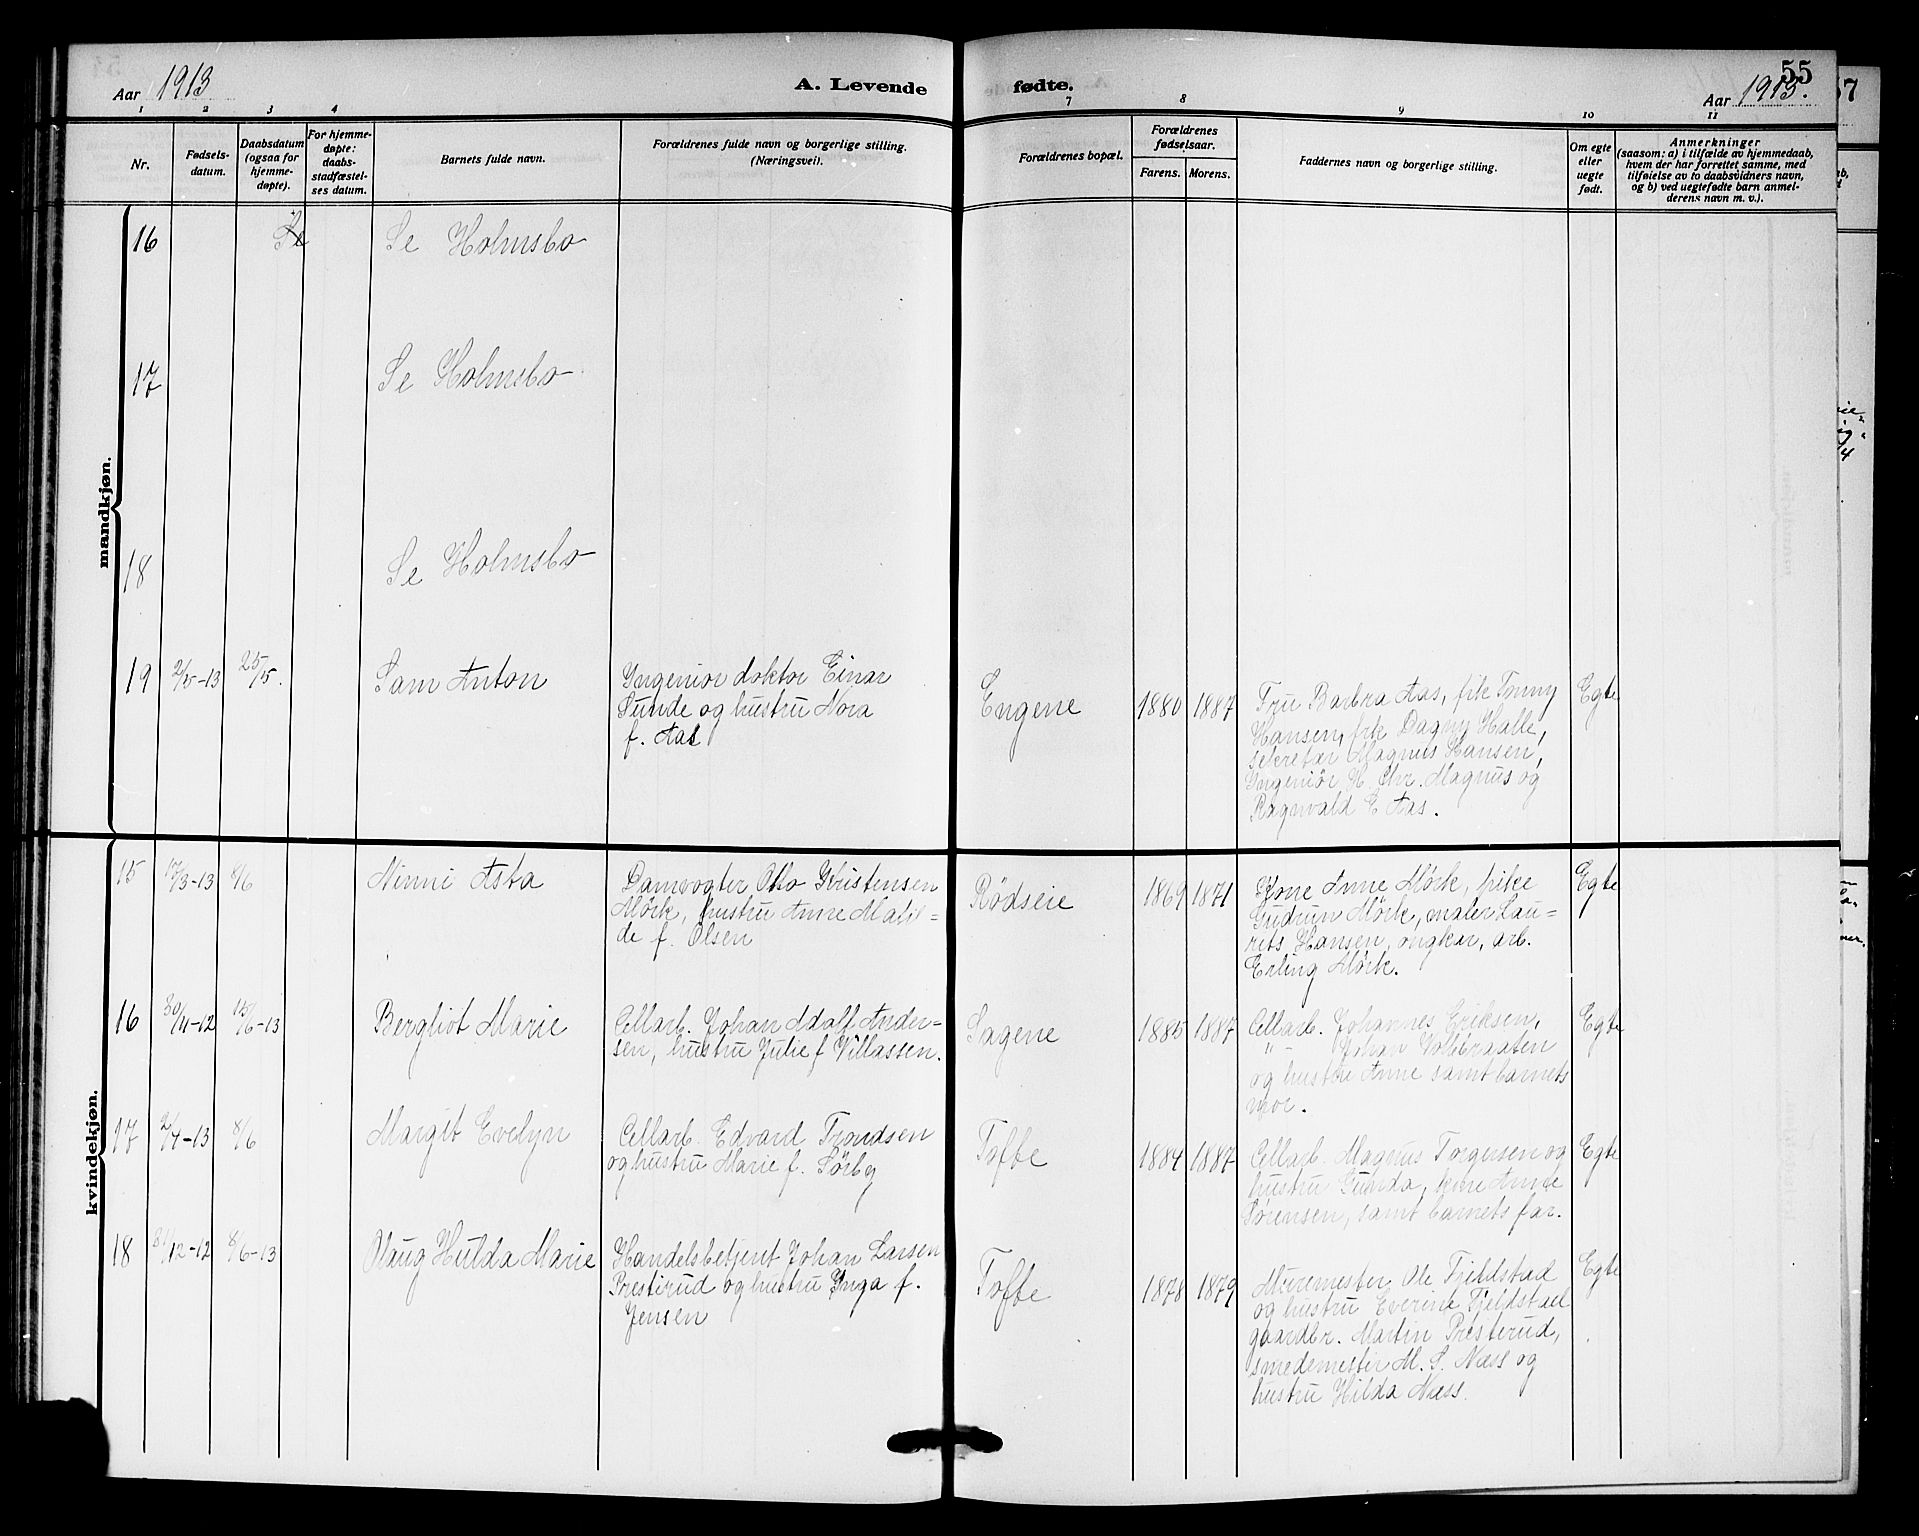 55
Aar 1913
A. Levende fødte.
Aar 1913.
57
1 2 3 4 7 8 9 10 11
Nr.
Fødsels-
datum.
Daabsdatum
(ogsaa for
hjemme-
døpte).
For hjemme-
døpte:
daabs-
stadfæstel-
ses datum.
Barnets fulde navn.
Forældrenes fulde navn og borgerlige stilling.
(Næringsvei).
Forældrenes bopæl.
Forældrenes
fødselsaar.
Farens. Morens.
Faddernes navn og borgerlige stilling.
Om egte
eller
uegte
født.
Anmerkninger
(saasom: a) i tilfælde av hjemmedaab,
hvem der har forrettet samme, med
tilføielse av to daabsvidners navn,
og b) ved uegtefødte barn anmel-
derens navn m. v.).
mandkjøn.
16 Se Se Holmsbo
17 Se Holmsbo
18 Se Holmsbo
19 2/5-13 25/5. Sam Anton
Ingeniør doktor Einar
Sunde og hustru Nora
f. Aas
Engene 1880 1887
Fru Barbra Aas, frk Tonny
Hansen, frk Dagny Halle,
sekretær Magnus Hansen,
Ingeniør H. Chr. Magnus og
Ragnvald E Aas.
Egte
kvindekjøn.
15 17/3-13 8/6 Ninni Asta
Damvogter Otto Kristensen
Mörk, hustru Anne Matil=
de f. Olsen
Rödseie 1869 1871
Kone Anne Mörk, pike
Gudrun Mörk, maler Lau=
rits Hansen, ungkar, arb.
Erling Mörk.
Egte
16 30/11-12 15/6-13 Bergliot Marie
Cellarb. Johan Adolf Ander=
sen, hustru Julie f Villassen.
Sagene 1885 1887
Cellarb. Johannes Eriksen,
" - Johan
og hustru Anne samt barnets
mor.
Egte
17 2/4-13 8/6 Margit Evelyn
Cellarb. Edvard Trondsen
og hustru Marie f. Sörby
Tofte 1884 1887
Cellarb. Magnus Torgersen og
hustru Gunda, kone Anne
Sörensen, samt barnets far.
Egte
18 31/12-12 8/6-13 Olaug Hulda Marie
Handelsbetjent Johan Larsen
Presterud og hustru Inga f.
Jensen
Tofte 1878 1879
Muremester Ole Fjeldstad
og hustru Everine Fjeldstad
gaardbr. Martin Presterud,
smedemester M. S. Næss og
hustru Hilda Næss.
Egte